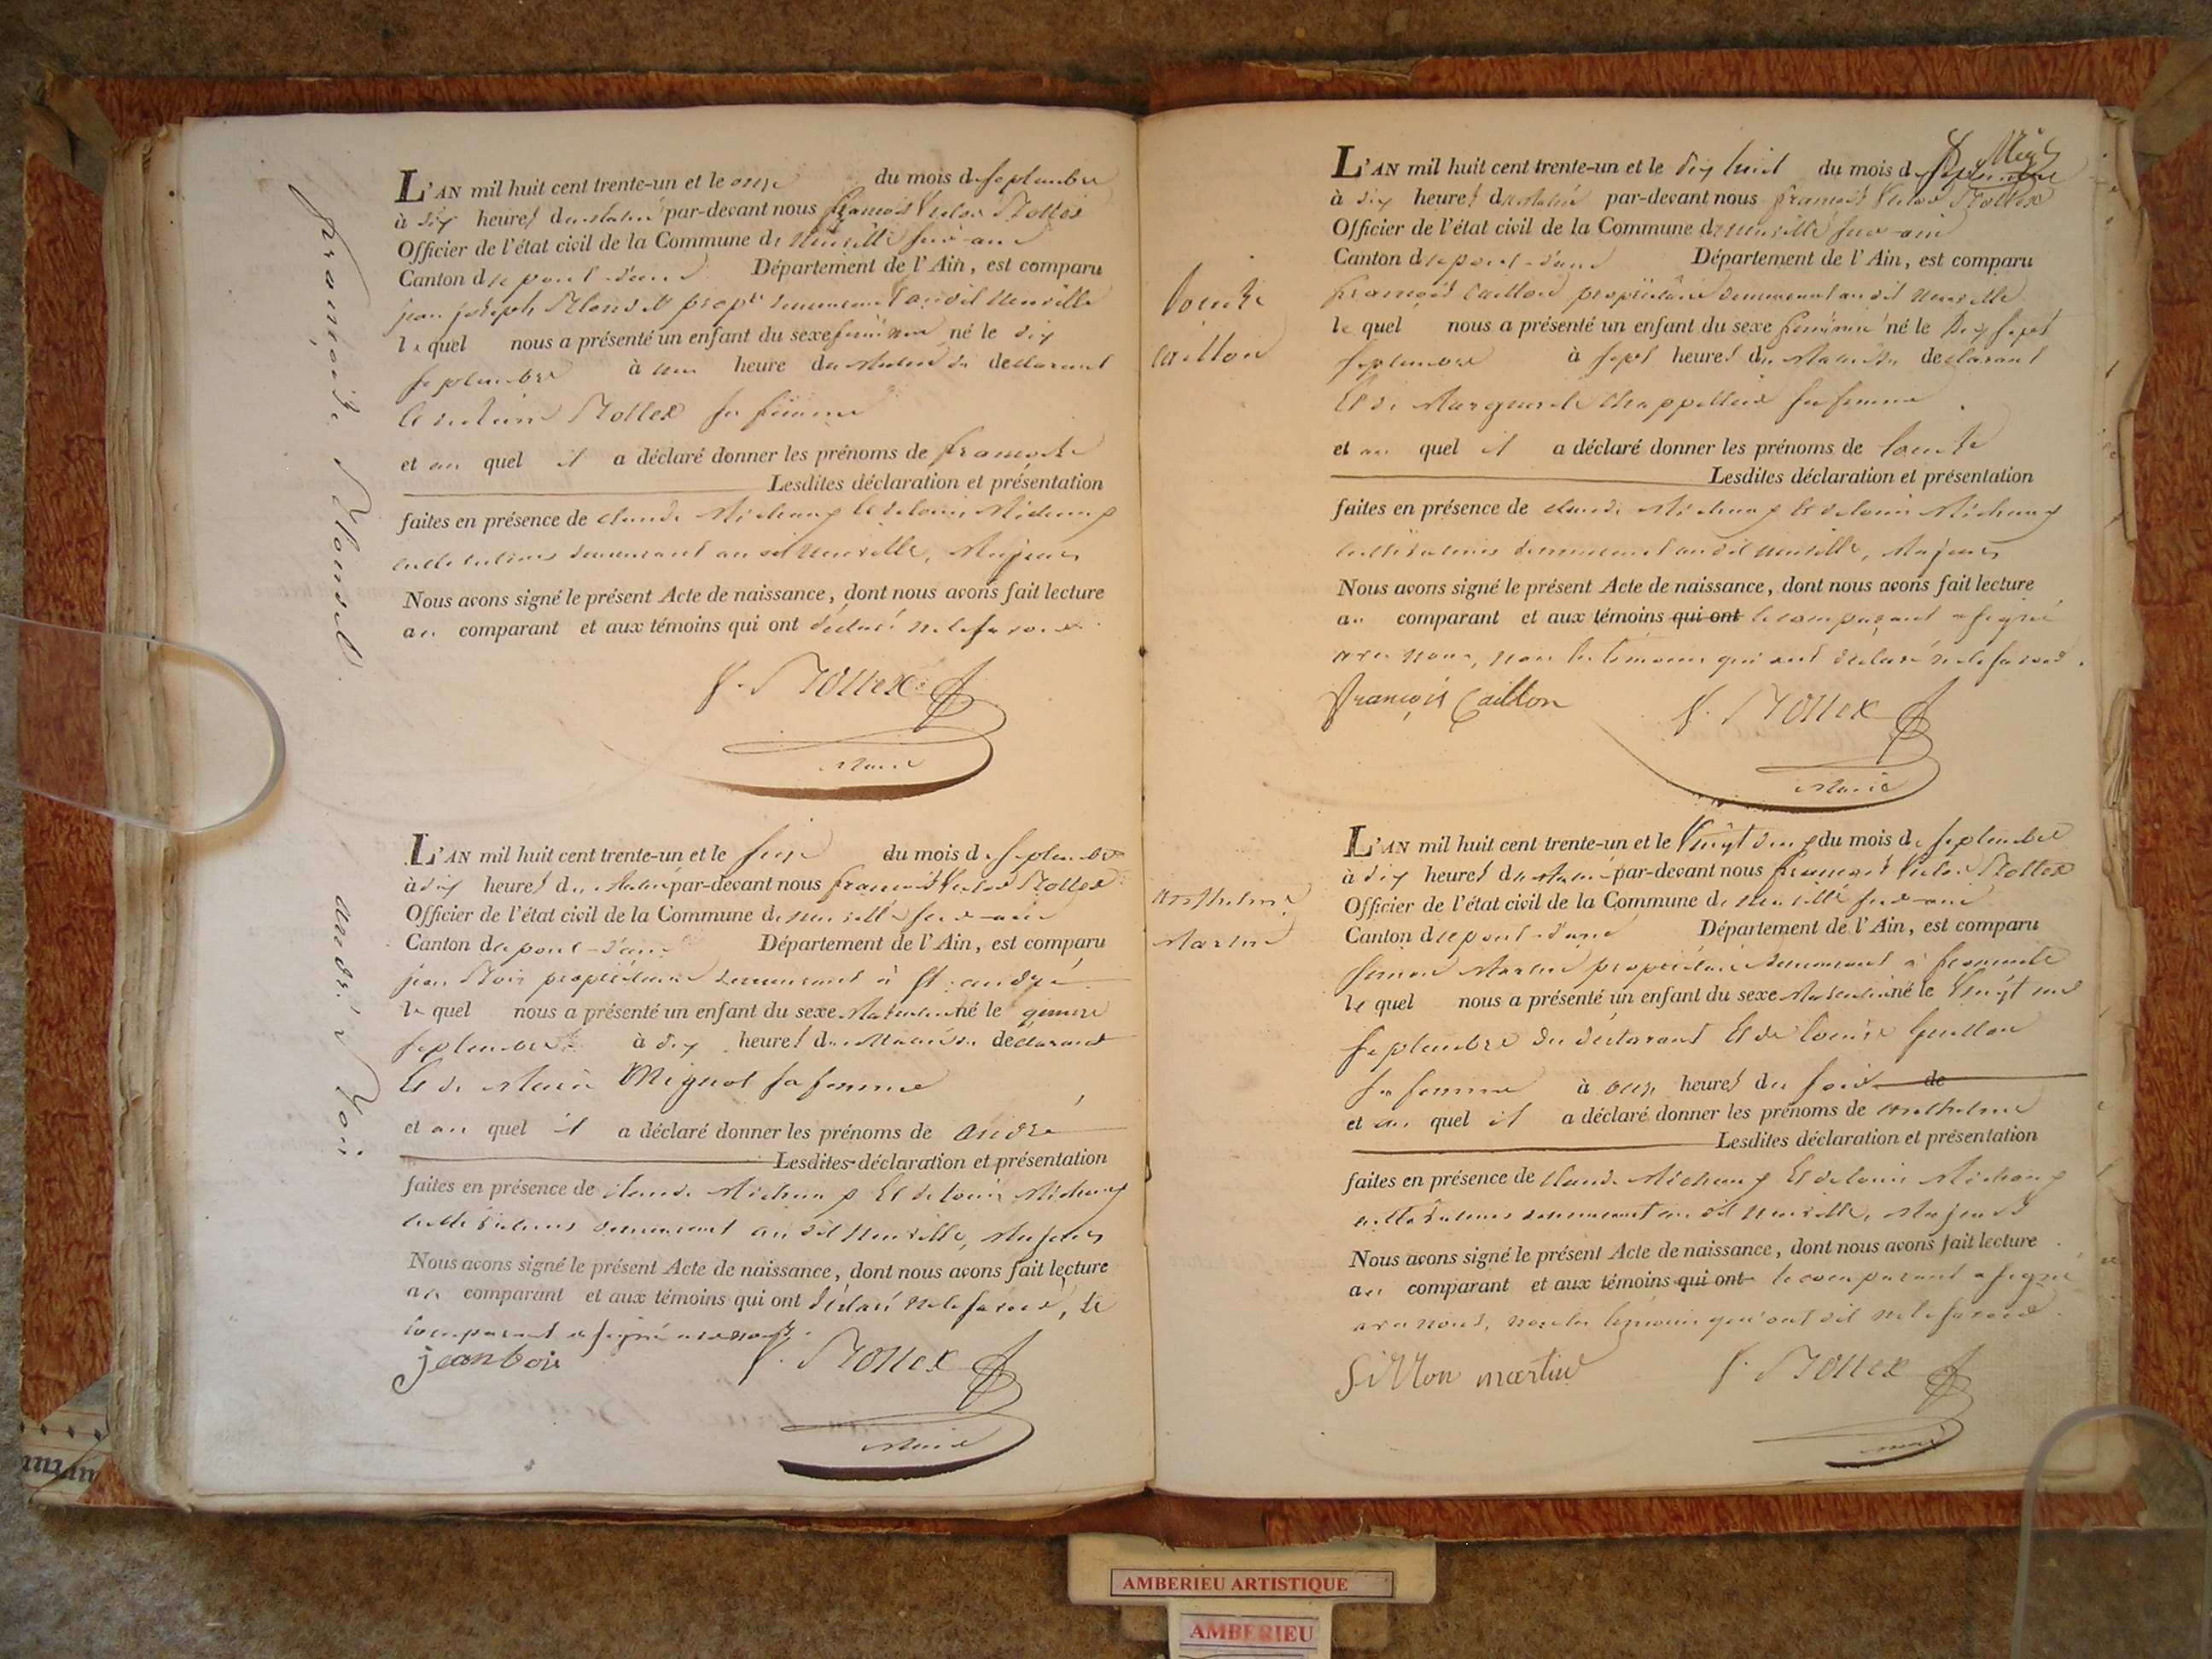 françoise Blondel
L'AN mil huit cent trente-un et le onze du mois de septembre
à dix heures du matin par-devant nous françois Victor Bottex
Officier de l'état civil de la Commune de Neuville sur ain
Canton de pont-d'ain Département de l'Ain, est comparu
jean joseph Blondel propre demeurant au dit Neuville
lequel nous a présenté un enfant du sexe feminin né le dix
septembre à une heure du Matin du déclarant
Et de Bottex sa femme
et au quel il a déclaré donner les prénoms de françoise
Lesdites déclaration et présentation
faites en présence de claude Michaux Et de louis Michaux
cultivateurs demeurant au dit Neuville, Majeurs
Nous avons signé le présent Acte de naissance, dont nous avons fait lecture
au comparant et aux témoins qui ont déclaré ne le savoir
V. Bottex
Maire
andré Boin
L'AN mil huit cent trente-un et le seize du mois de septembre
à dix heures du Matin par-devant nous françois Victor Bottex
Officier de l'état civil de la Commune de Neuville sur ain
Canton de pont-d'ain Département de l'Ain, est comparu
jean propriétaire demeurant à St. andré
lequel nous a présenté un enfant du sexe Masculin né le quinze
septembre à dix heures du Matin du déclarant
Et de Marie Mignot sa femme
et au quel il a déclaré donner les prénoms de andré
Lesdites déclaration et présentation
faites en présence de claude Michaux Et de louis Michaux
cultivateurs demeurant au dit Neuville, Majeurs
Nous avons signé le présent Acte de naissance, dont nous avons fait lecture
au comparant et aux témoins qui ont déclaré ne le savoir, le
comparant a signé avec nous.
jean boin V. Bottex
Maire
Louise
caillon
L'AN mil huit cent trente-un et le dix huit du mois de septembre
à dix heures du Matin par-devant nous françois Victor Bottex
Officier de l'état civil de la Commune de Neuville sur ain
Canton de pont-d'ain Département de l'Ain, est comparu
françois caillon propriétaire demeurant au dit Neuville
lequel nous a présenté un enfant du sexe feminin né le Dix sept
septembre à sept heures du Matin du déclarant
Et de Marguerite sa femme
et au quel il a déclaré donner les prénoms de Louise
Lesdites déclaration et présentation
faites en présence de claude Michaux Et de louis Michaux
cultivateurs demeurant au dit Neuville, Majeurs
Nous avons signé le présent Acte de naissance, dont nous avons fait lecture
au comparant et aux témoins qui ont le comparant a signé
avec nous, non les témoins qui ont déclaré ne le savoir.
françois Caillon V. Bottex
Maire
anthelme
Martin
L'AN mil huit cent trente-un et le Vingt deux du mois de septembre
à dix heures du Matin par-devant nous françois Victor Bottex
Officier de l'état civil de la Commune de Neuville sur ain
Canton de pont-d'ain Département de l'Ain, est comparu
simon Martin propriétaire demeurant à
lequel nous a présenté un enfant du sexe Masculin né le Vingt un
septembre du déclarant Et de Louise Guillon
sa femme à onze heures du soir de
et au quel il a déclaré donner les prénoms de anthelme
Lesdites déclaration et présentation
faites en présence de claude Michaux Et de louis Michaux
cultivateurs demeurant au dit Neuville, Majeurs
Nous avons signé le présent Acte de naissance, dont nous avons fait lecture
au comparant et aux témoins qui ont le comparant a signé
avec nous, non les témoins qui ont dit ne le savoir.
SiMon martin V. Bottex
maire
AMBERIEU ARTISTIQUE
AMBERIEU